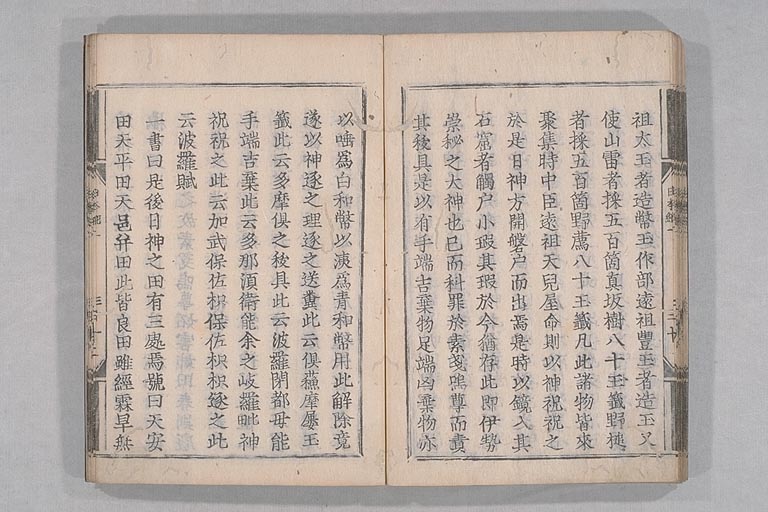 祖太玉者造幣玉作部遠祖豐玉者造玉又
使山雷者採五百箇真坂樹八十玉籤野槌
者採五百箇野薦八十玉籤凡此諸物皆來
聚集時中臣遠祖天兒屋命則以神祝祝之
於是日神方開磐户而出焉是時以鏡入其
石窟者觸户小瑕其瑕於今猶存此即伊勢
崇秘之大神也已而科罪於素戔嗚尊而責
其祓具是以有手端吉棄物足端凶棄物亦
以唾爲白和幣以洟爲青和幣用此解除竟
遂以神逐之理逐之送糞此云倶蘓摩屢玉
籤此云多摩倶之祓具此云波羅閇都母能
手端吉棄此云多那湏衛能余之岐羅毗神
祝祝之此云加武保佐枳保佐枳枳逐之此
云波羅賦
一書曰是後日神之田有三處焉號曰天安
田天平田天邑并田此皆良田雖經霖旱無